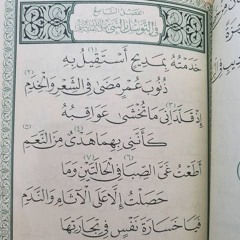 الفصل التاسع
في التوسل بالنبي
خَدَمْتُهُ بِمَدِيحٍ أَسْتَقِيلُ بِهِ
ذُنُوبَ عُمْرٍ مَضَى فِي الشِّعْرِ وَالْخِدَمِ
إِذْ قَلَّدَانِيَ مَا تُخْشَى عَوَاقِبُهُ
كَأَنَّنِي بِهِمَا هَدْيٌ مِنَ النَّعَمِ
أَطَعْتُ غَيَّ الصِّبَا فِي الْحَالَتَيْنِ وَمَا
حَصَلْتُ إِلَّا عَلَى الْآثَامِ وَالنَّدَمِ
فَيَا خَسَارَةَ نَفْسٍ فِي تِجَارَتِهَا